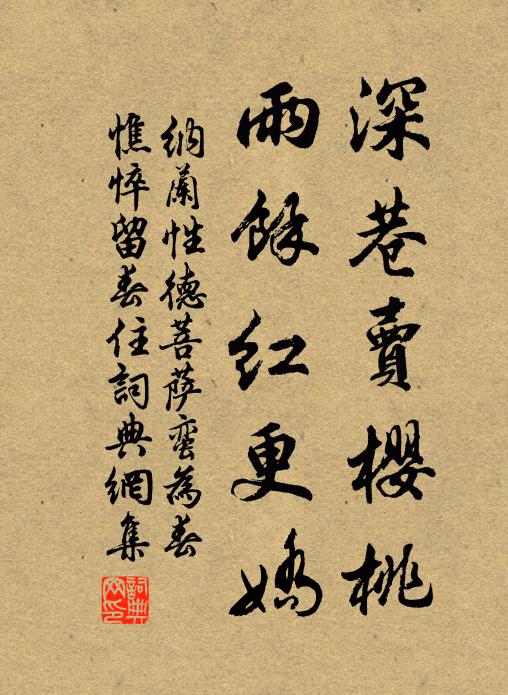 深巷賣櫻桃
雨餘紅更嬌
納蘭性德菩薩蠻為春
憔悴留春住詞典網集
詞典
网印